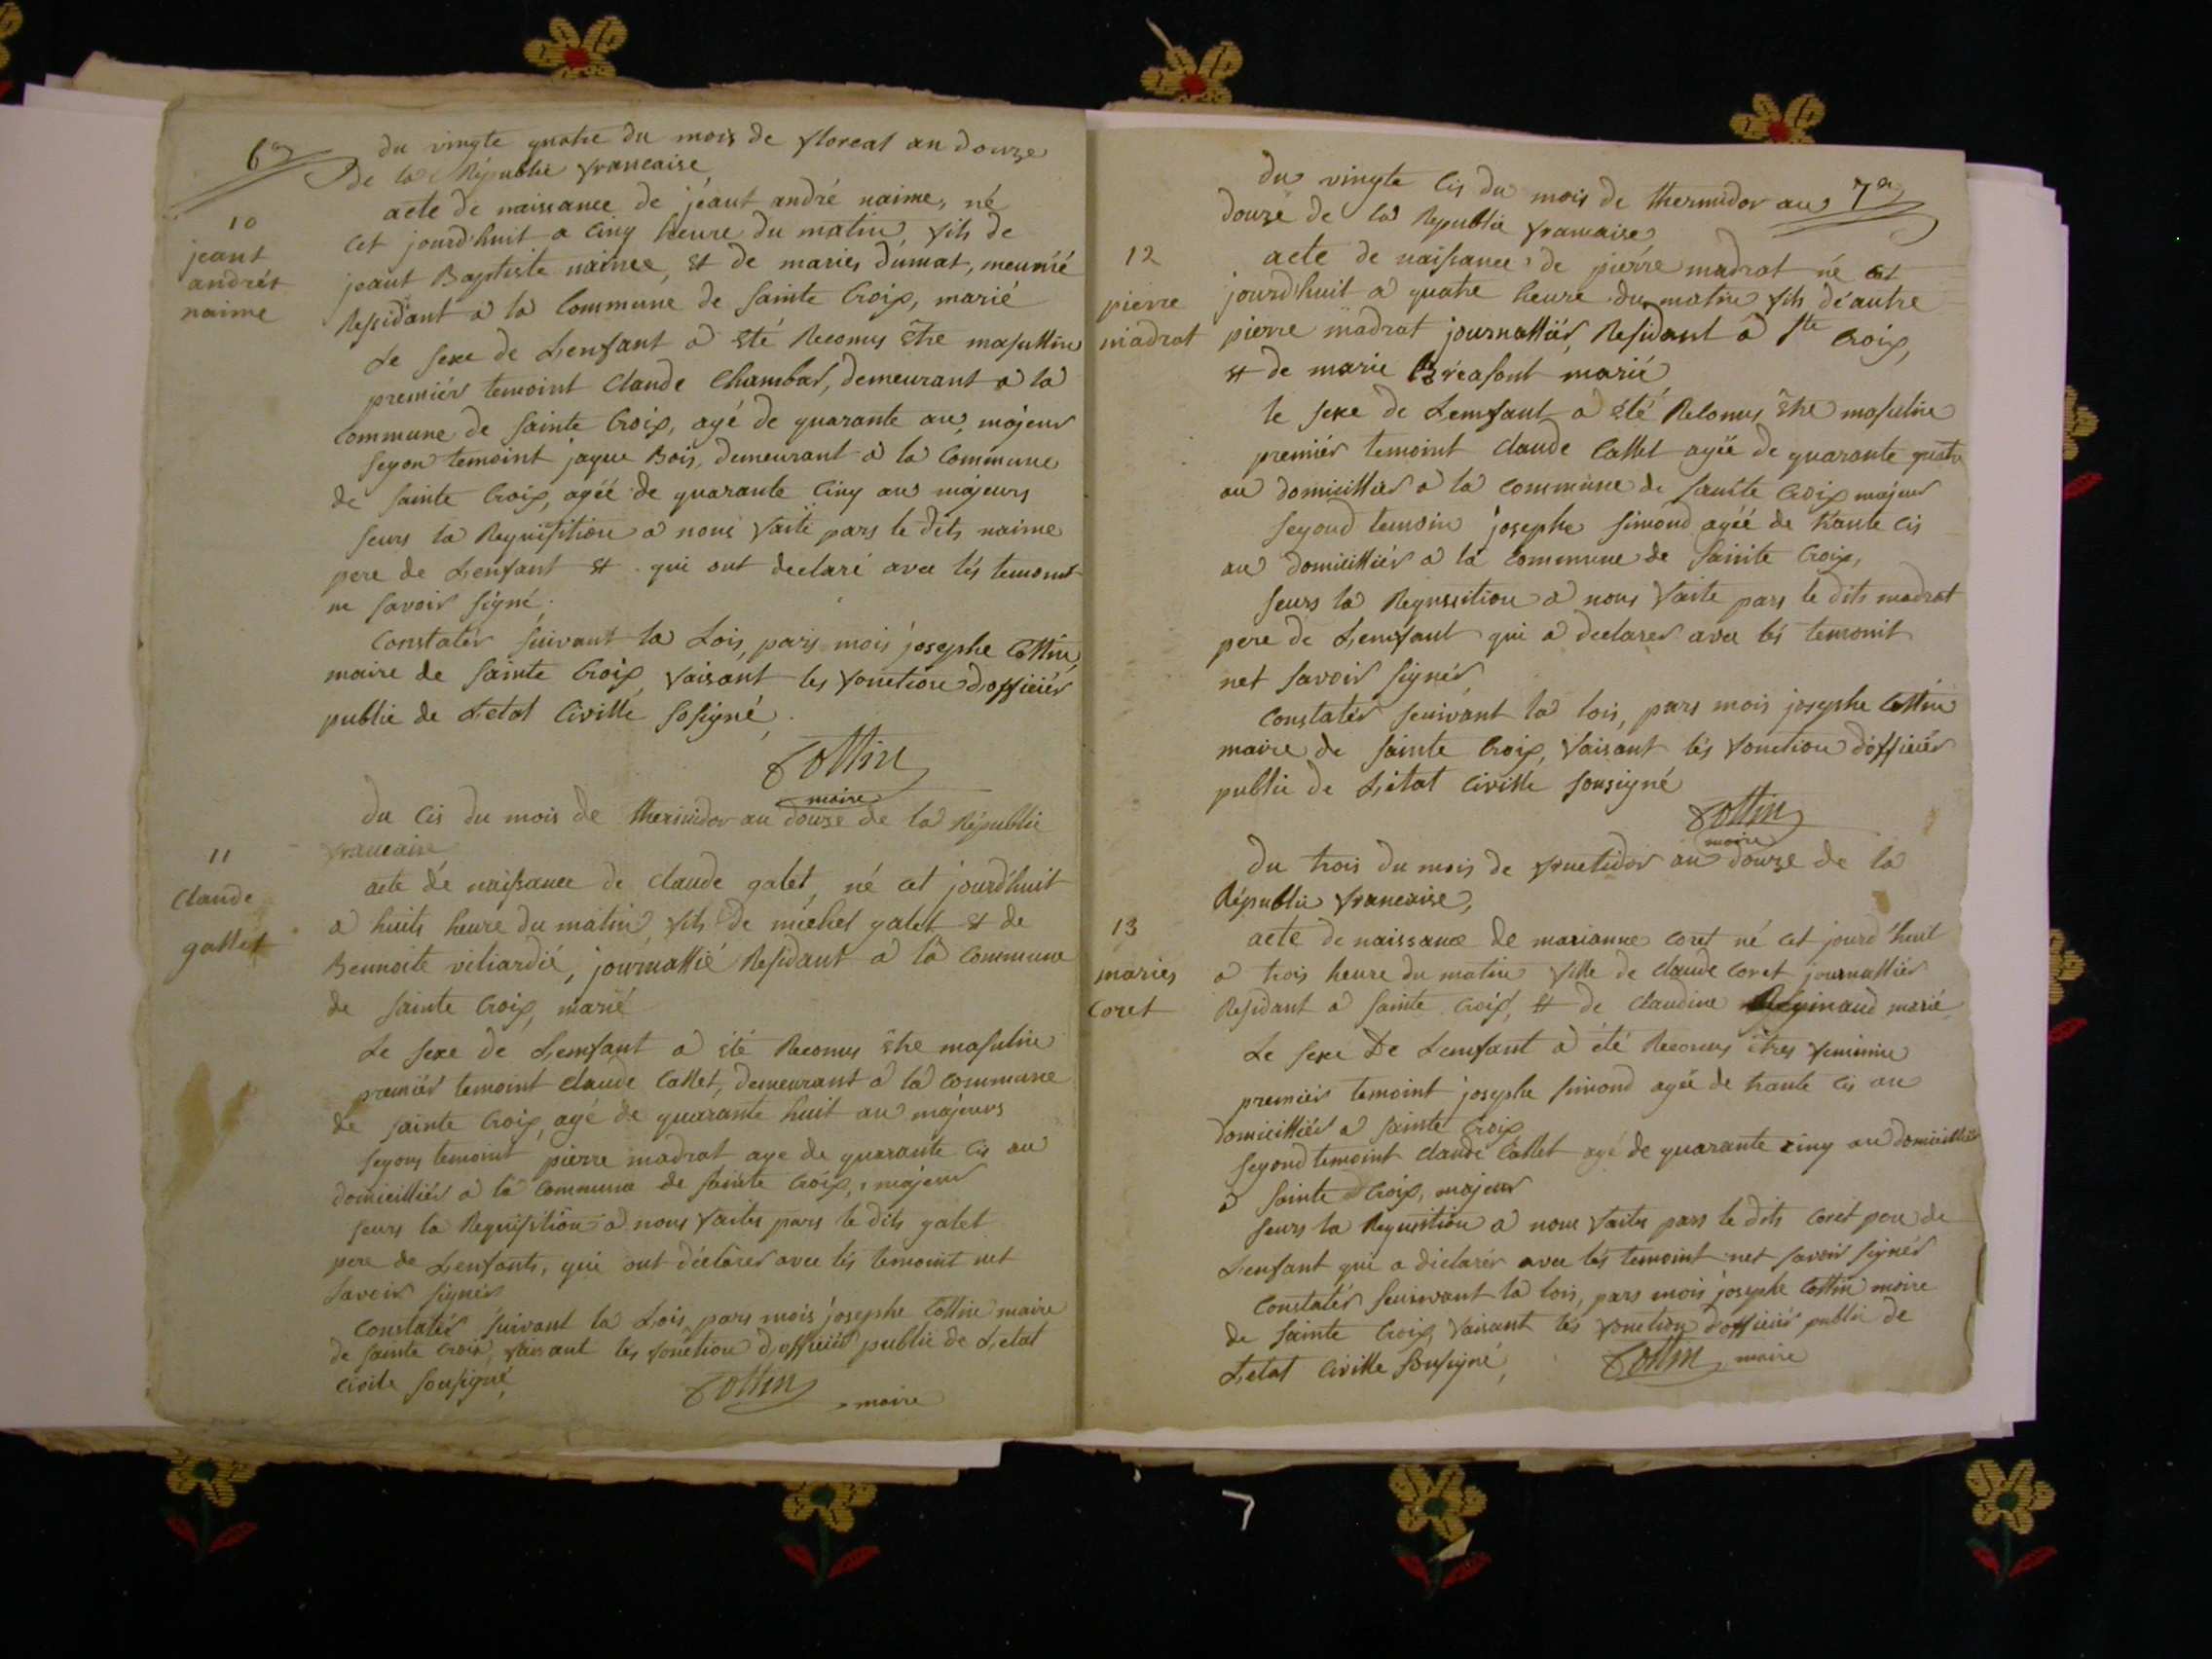 6e
du vingte quatre du mois de floreal an douze
de la Républie francaise
10
jeant
andrés
naime
acte de naissance de jéant andré naime, né
cet jourd'huit a cinq heure du matin, fils de
jeant Baptiste naimee, et de maries dumat, meunié
Residant a la Commune de sainte Croix, marié
Le sexe de L'enfant a été Reconus être masuttin
premiér temoint Claude Chambar, demeurant a la
Commune de sainte Croix, agé de quarante an, majeur
segon temoint jaque Bois, demeurant a la Commune
de sainte Croix, agéé de quarante cinq an majeurs
seurs la Requisition a nous faite pars le dits naime
pere de L'enfant et qui ont declaré avec lés temoint
ne savoir signé.
Constatér suivant la Lois, pars mois josephe Cottin,
maire de sainte Croix, faisant les fonction d'officiér
public de L'etat Civille sosigné,
Cottin
maire
du Cis du mois de thermidor an douze de la Républie
francaise
11
Claude
gallet
acte de naissance de claude galet, né cet jourd'huit
a huits heure du matin, fils de michel galet et de
Bennoite viliardié, journallié Residant a la Commune
de sainte Croix, marié
Le sexe de L'enfant a été Reconus être masulin
premiér temoint claude Callet, demeurant a la commune
de sainte Croix, agé de quarante huit an majeurs
segons temoint pierre madrat age de quarante cis an
domicilliér a la Commune de sainte Croix, majeur
seurs la Requisition a nous faites pars le dits galet
pere de L'enfants, qui ont déclarer avec lés temoint net
savoir signér
Constatér suivant la Lois, pars mois josephe Cottin maire
de sainte Croix, faisant les fonction d'officiér public de L'etat
Civile sousigné,
Cottin maire
du vingte Cis du mois de thermidor an 7e
douze de la Republie francaise
12
pierre
madrat
acte de naissance de pierre madrat né cet
jourd'huit a quatre heure du matin fils d'éautre
pierre madrat journalliér, Residant a Ste Croix,
et de marie Bréasont marié
le sexe de L'emfant a été Reconus être masulin
premiér temoint claude Callet agéé de quarante quatre
an domicilliér a la commune de sainte Croix majeur
segond temoin josephe simond agéé de trante cis
an domicilliér a la Commune de sainte Croix,
seurs la Requssition a nous faite pars le dits madrat
pere de L'emfant qui a declarer avec lés temoint
net savoir signér
Constatér seuivant la lois, pars mois josephe Cottin
maire de sainte Croix, faisant lés fonction d'officiér
public de L'état Civille sousigné
Cottin
maire
du trois du mois de fructidor an douze de la
Républie francaise,
13
maries
Coret
acte de naissance de marianne Coret né cet jourd'huit
a trois heure du matin fille de claude Coret journalliér
Residant a sainte Croix, et de claudine Reginaud marié
Le sexe De L'emfant a été Reconus êtres feminin
premiér temoint josephe simond agéé de trante cis an
domicilliér a sainte Croix
segond temoint claude Callet agé de quarante cinq an domicilliér
a sainte Croix, majeur
seurs la Requistion a nous faites pars le dits Coret pere de
L'enfant qui a déclarér avec lés temoint net savoir signér
Constatér seuivant la lois, pars mois josephe Cottin maire
de sainte Croix, faisant lés fonction d'officiér public de
L'etat Civille sousigné,
Cottin maire